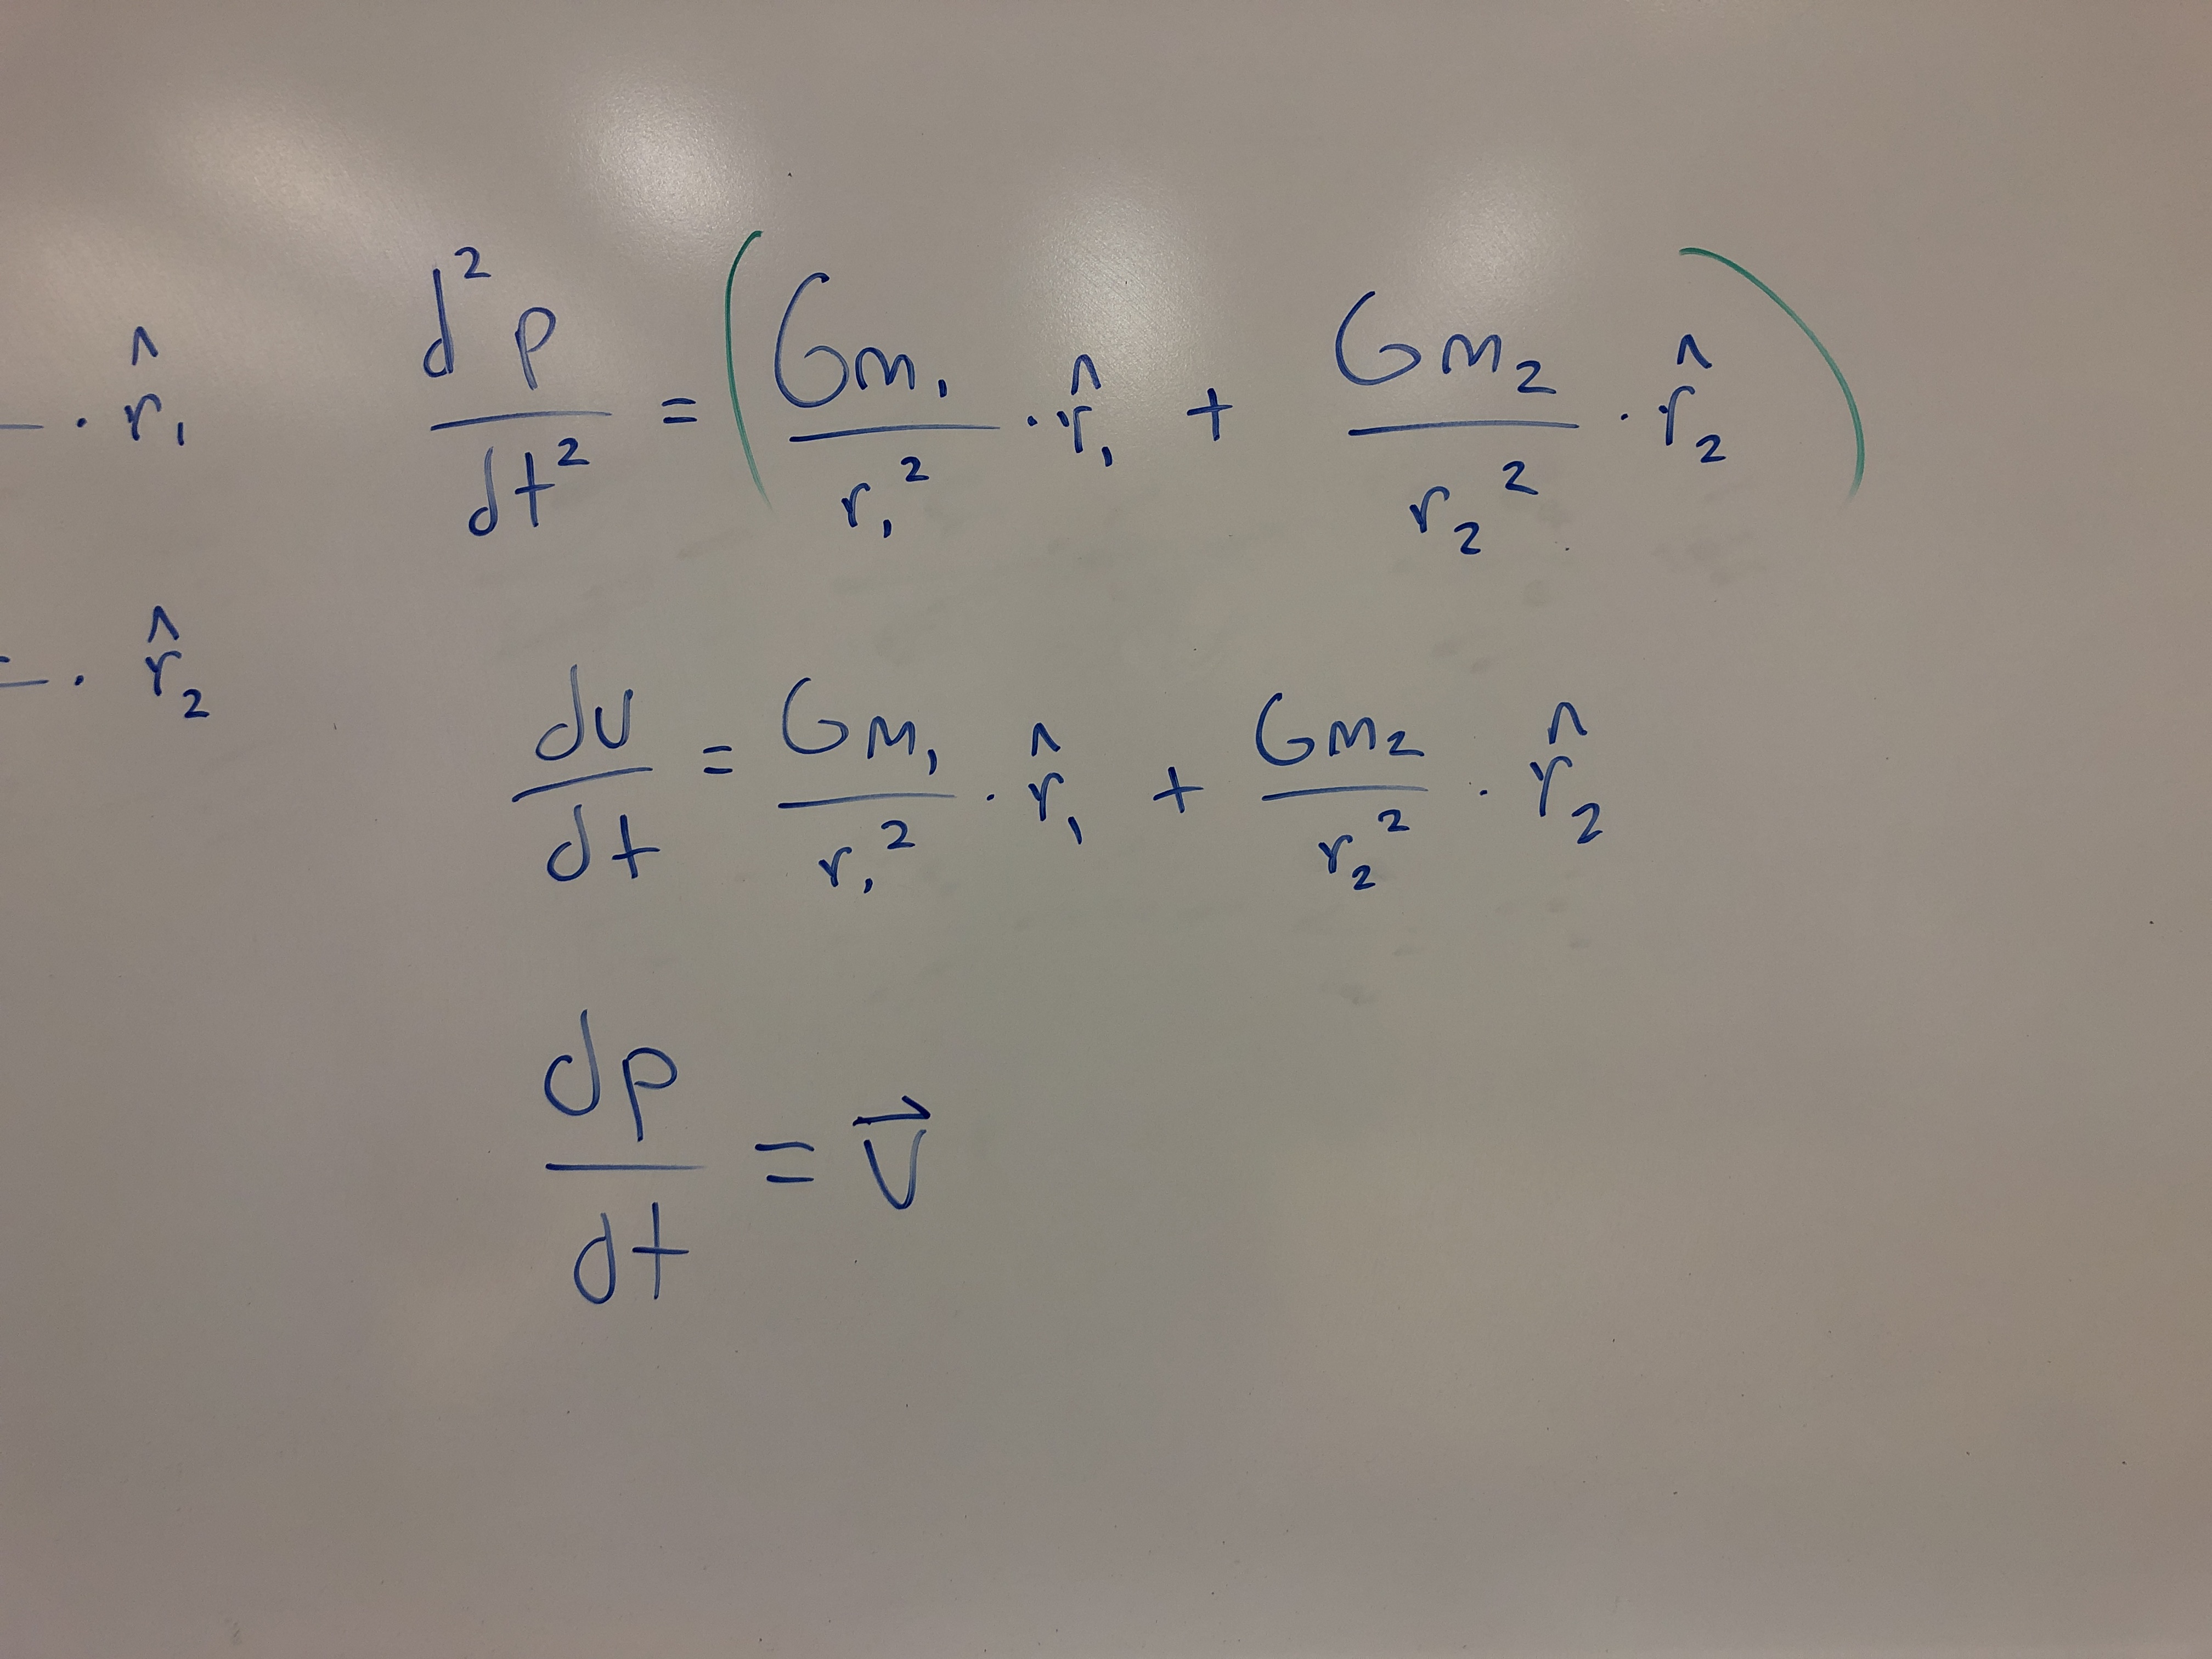 · r̂₁
d²p/dt² = (Gm₁/r₁² · r̂₁ + Gm₂/r₂² · r̂₂)
· r̂₂
dv/dt = Gm₁/r₁² · r̂₁ + Gm₂/r₂² · r̂₂
dp/dt = v⃗